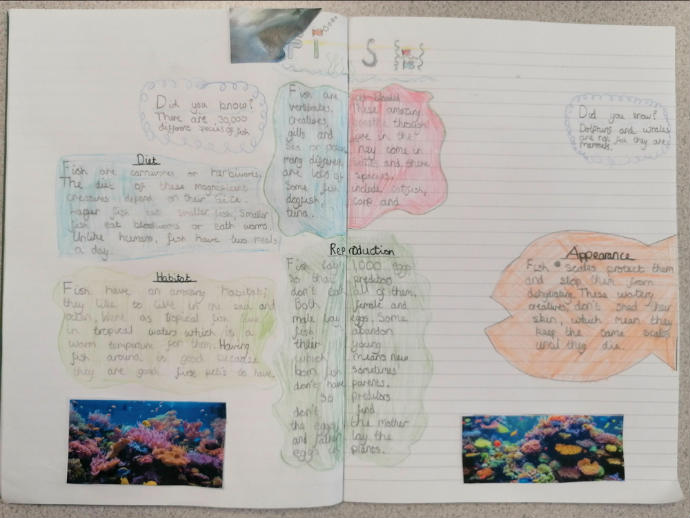 FISH
Did you know?
There are 30,000
different species of fish
Fish are cold-blooded
vertebrates. These amazing
creatures, breathe through
gills and live in the
sea or ponds. They come in
many different sizes and there
are lots of species.
Some fish include catfish,
dogfish, carp and
tuna.
Did you know?
Dolphins and whales
are not fish they are
mammals.
Diet
Fish are carnivores or herbivores.
The diet of these magnificent
creatures depend on their size.
Larger fish eat smaller fish, smaller
fish eat bloodworms or earth worms.
Unlike humans, fish have two meals
a day.
Habitat
Fish have an amazing habitat;
they like to live in the sea and
ocean. Went as tropical fish live
in tropical waters which is a
warm temperature for them. Having
fish around is good because
they are good first pets to have.
Reproduction
Fish lay 1,000 eggs
so that preditors
don't eat all of them.
Both female and
male lay eggs. Some
fish abandon
their young
which means new
born fish sometimes
don't have parents.
so preditors
don't find
the eggs the mother
and father lay the
eggs in plants.
Appearance
Fish scales protect them
and stop them from
dehydrating. These watery
creatures, don't shed their
skin, which mean they
keep the same scales
until they die.